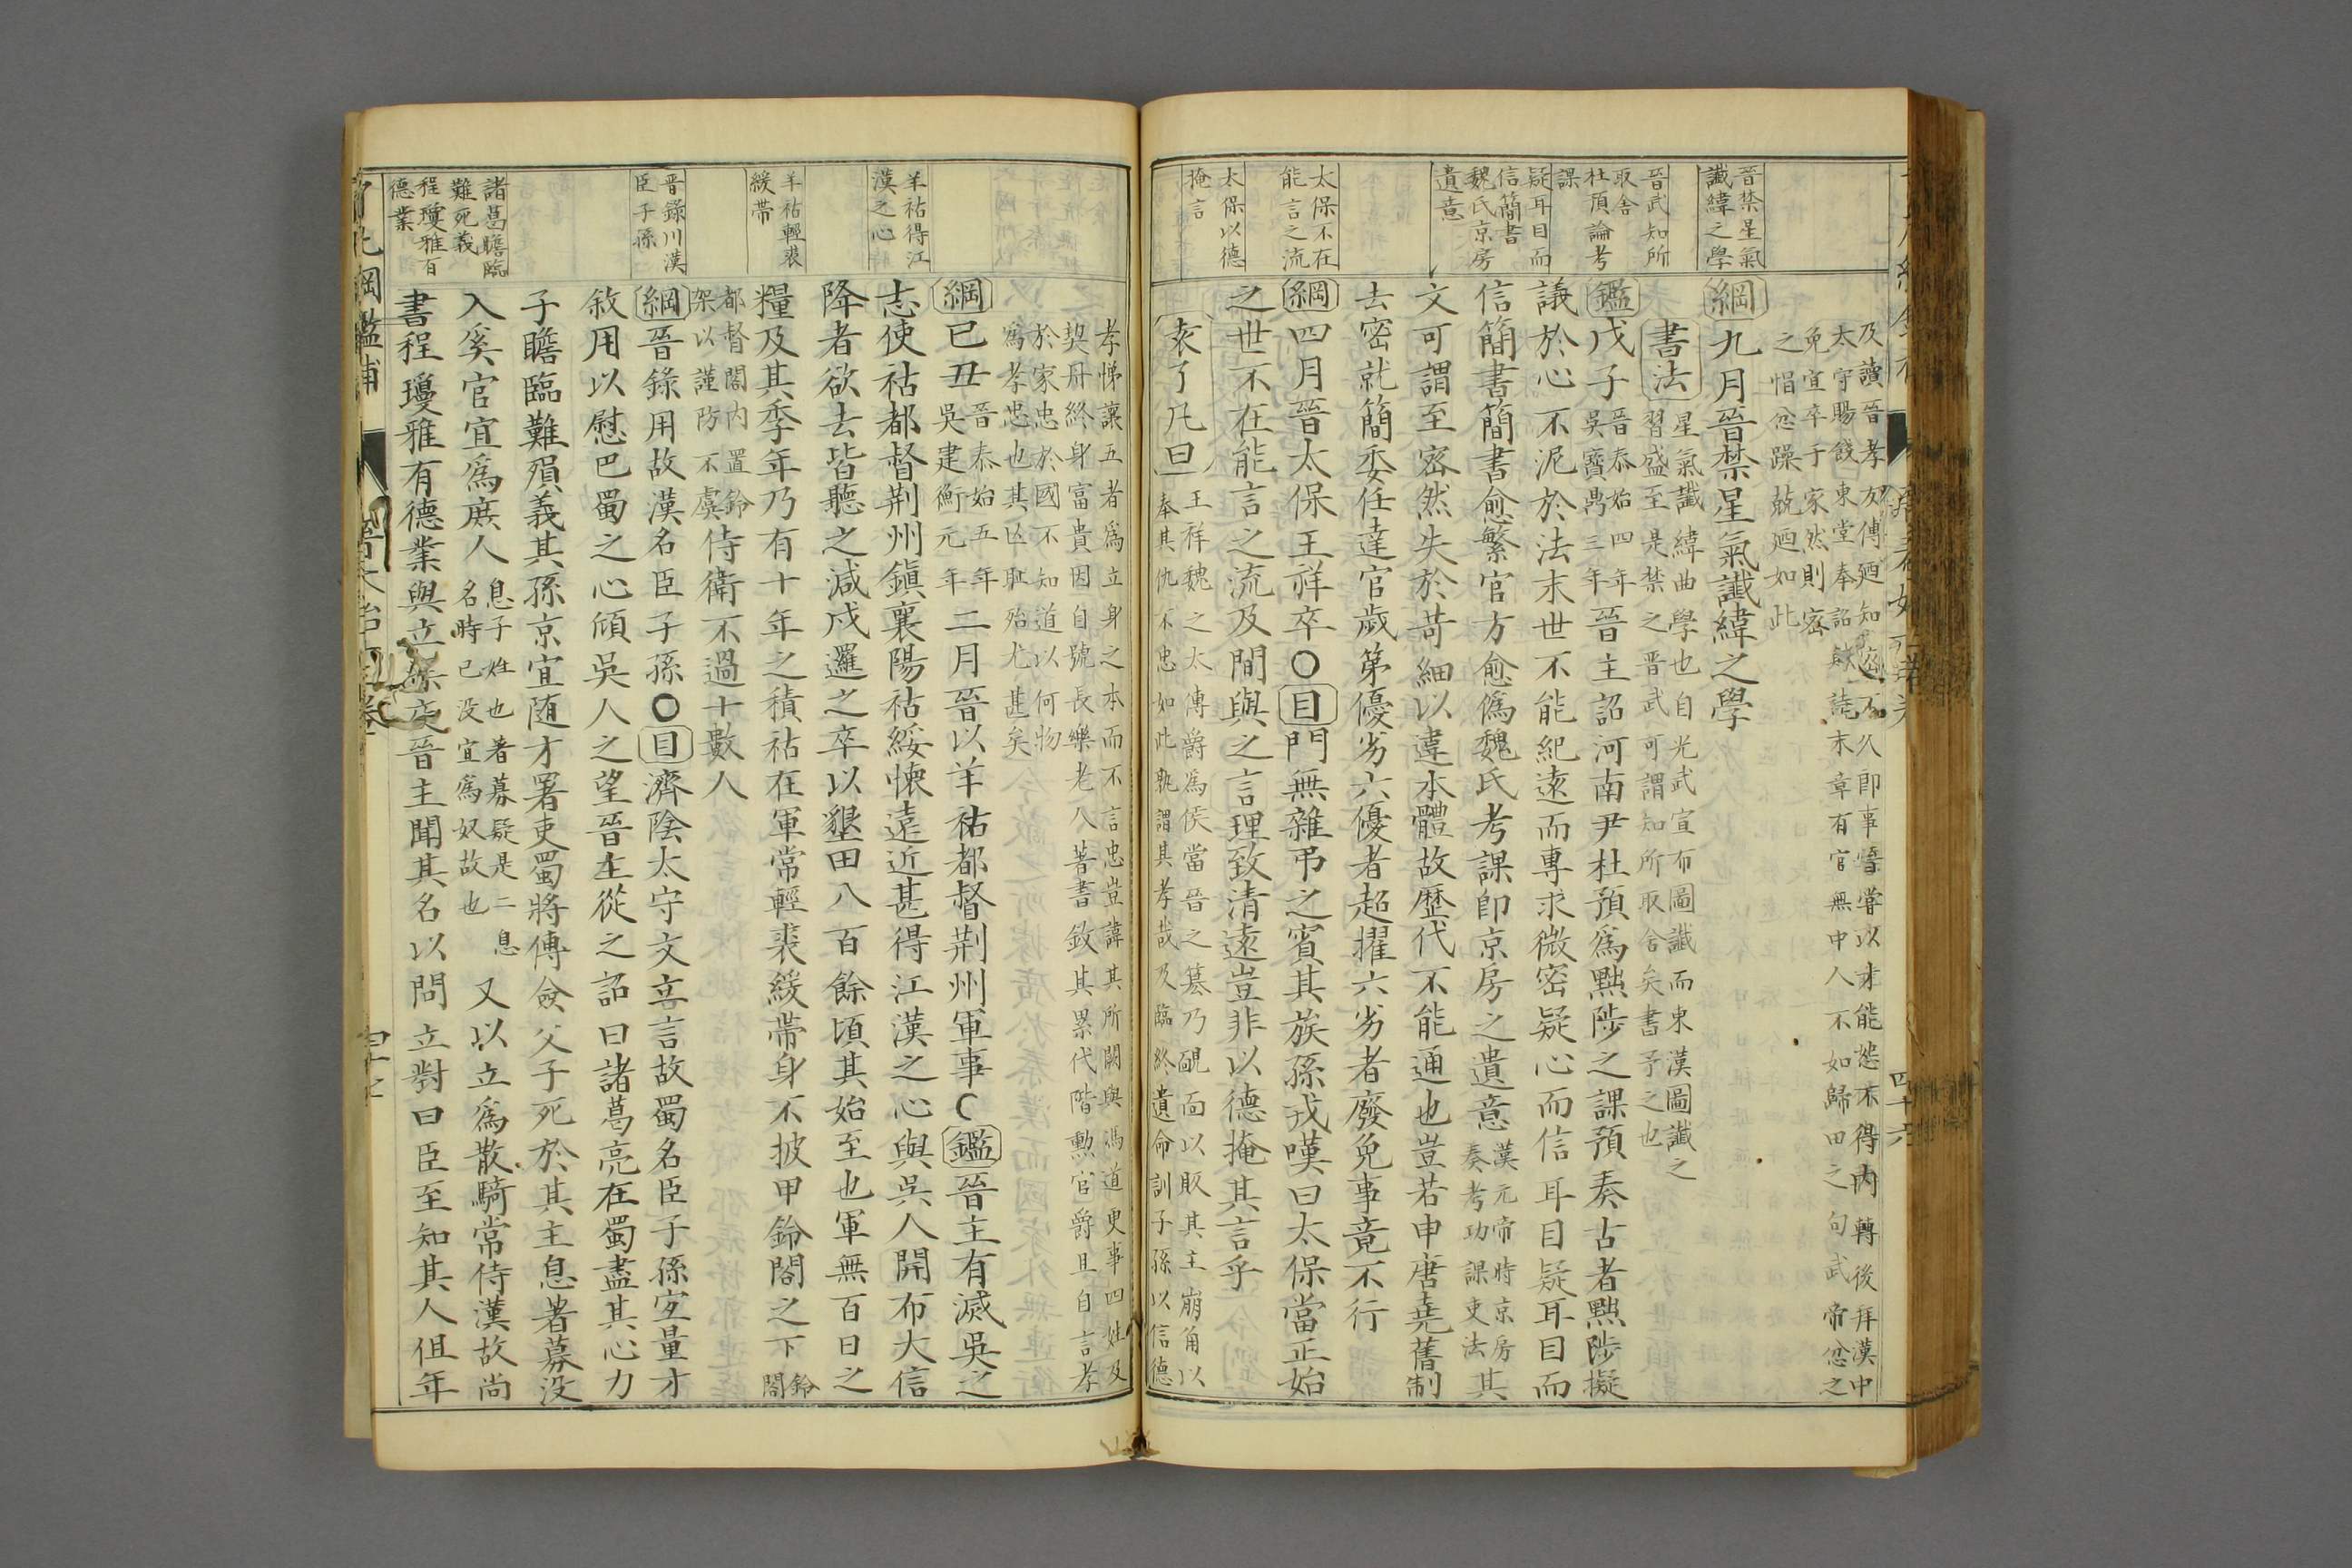 晉禁星氣
讖緯之學
晉武知所
取舍
杜預論考
課
疑耳目而
信簡書
魏氏京房
遺意
太保不在
能言之流
太保以德
掩言
及讀晉孝友傳廼知密不久即事嘗以才能怨不得內轉後拜漢中
太守賜餞東堂奉詔賦詩末章有官無中人不如歸田之句武帝忿之
免官卒于家然則密
之悁忿躁兢廼如此
綱九月晉禁星氣讖緯之學
書法星氣讖緯曲學也自光武宣布圖讖而東漢圖讖之
習盛至是禁之晉武可謂知所取舍矣書予之也
鑑戊子晉泰始四年吳寶鼎三年晉主詔河南尹杜預為黜陟之課預奏古者黜陟擬
議於心不泥於法末世不能紀遠而專求微密疑心而信耳目疑耳目而
信簡書簡書愈繁官方愈偽魏氏考課即京房之遺意漢元帝時京房奏考功課吏法其
文可謂至密然失於苛細以違本體故歷代不能通也豈若申唐堯舊制
去密就簡委任達官歲第優劣六優者超擢六劣者廢免事竟不行
綱四月晉太保王祥卒○目門無雜弔之賓其族孫戎嘆曰太保當正始
之世不在能言之流及間與之言理致清遠豈非以德掩其言乎
袁了凡曰王祥魏之太傅爵為侯當晉之篡乃靦面以販其主崩角以
奉其仇不忠如此孰謂其孝哉及臨終遺命訓子孫以信德
孝悌讓五者為立身之本而不言忠豈諱其所闕與馮道更事四姓及
契丹終身富貴因自號長樂老人著書敘其累代階勳官爵且自言孝
於家忠於國不知道以何物
為孝忠也其囚恥殆尤甚矣
羊祜得江
漢之心
羊祜輕裘
緩帶
晉錄川漢
臣子孫
諸葛瞻臨
難死義
程瓊雅百
德業
綱己丑晉泰始五年吳建衡元年二月晉以羊祜都督荊州軍事○鑑晉主有滅吳之
志使祜都督荊州鎮襄陽祜綏懷遠近甚得江漢之心與吳人開布大信
降者欲去皆聽之減戍邏之卒以墾田八百餘頃其始至也軍無百日之
糧及其季年乃有十年之積祜在軍常輕裘緩帶身不披甲鈴閣之下鈴閣
都督閣內置鈴架以謹防不虞侍衛不過十數人
綱晉錄用故漢名臣子孫○目濟陰太守文立言故蜀名臣子孫宜量才
敘用以慰巴蜀之心傾吳人之望晉主從之詔曰諸葛亮在蜀盡其心力
子瞻臨難殞義其孫京宜随才署吏蜀將傅僉父子死於其主息著募没
入奚官宜為庶人息子姓也著募疑是二息名時已没宜為奴故也又以立為散騎常侍漢故尚
書程瓊雅有德業與立深交晉主聞其名以問立對曰臣至知其人但年